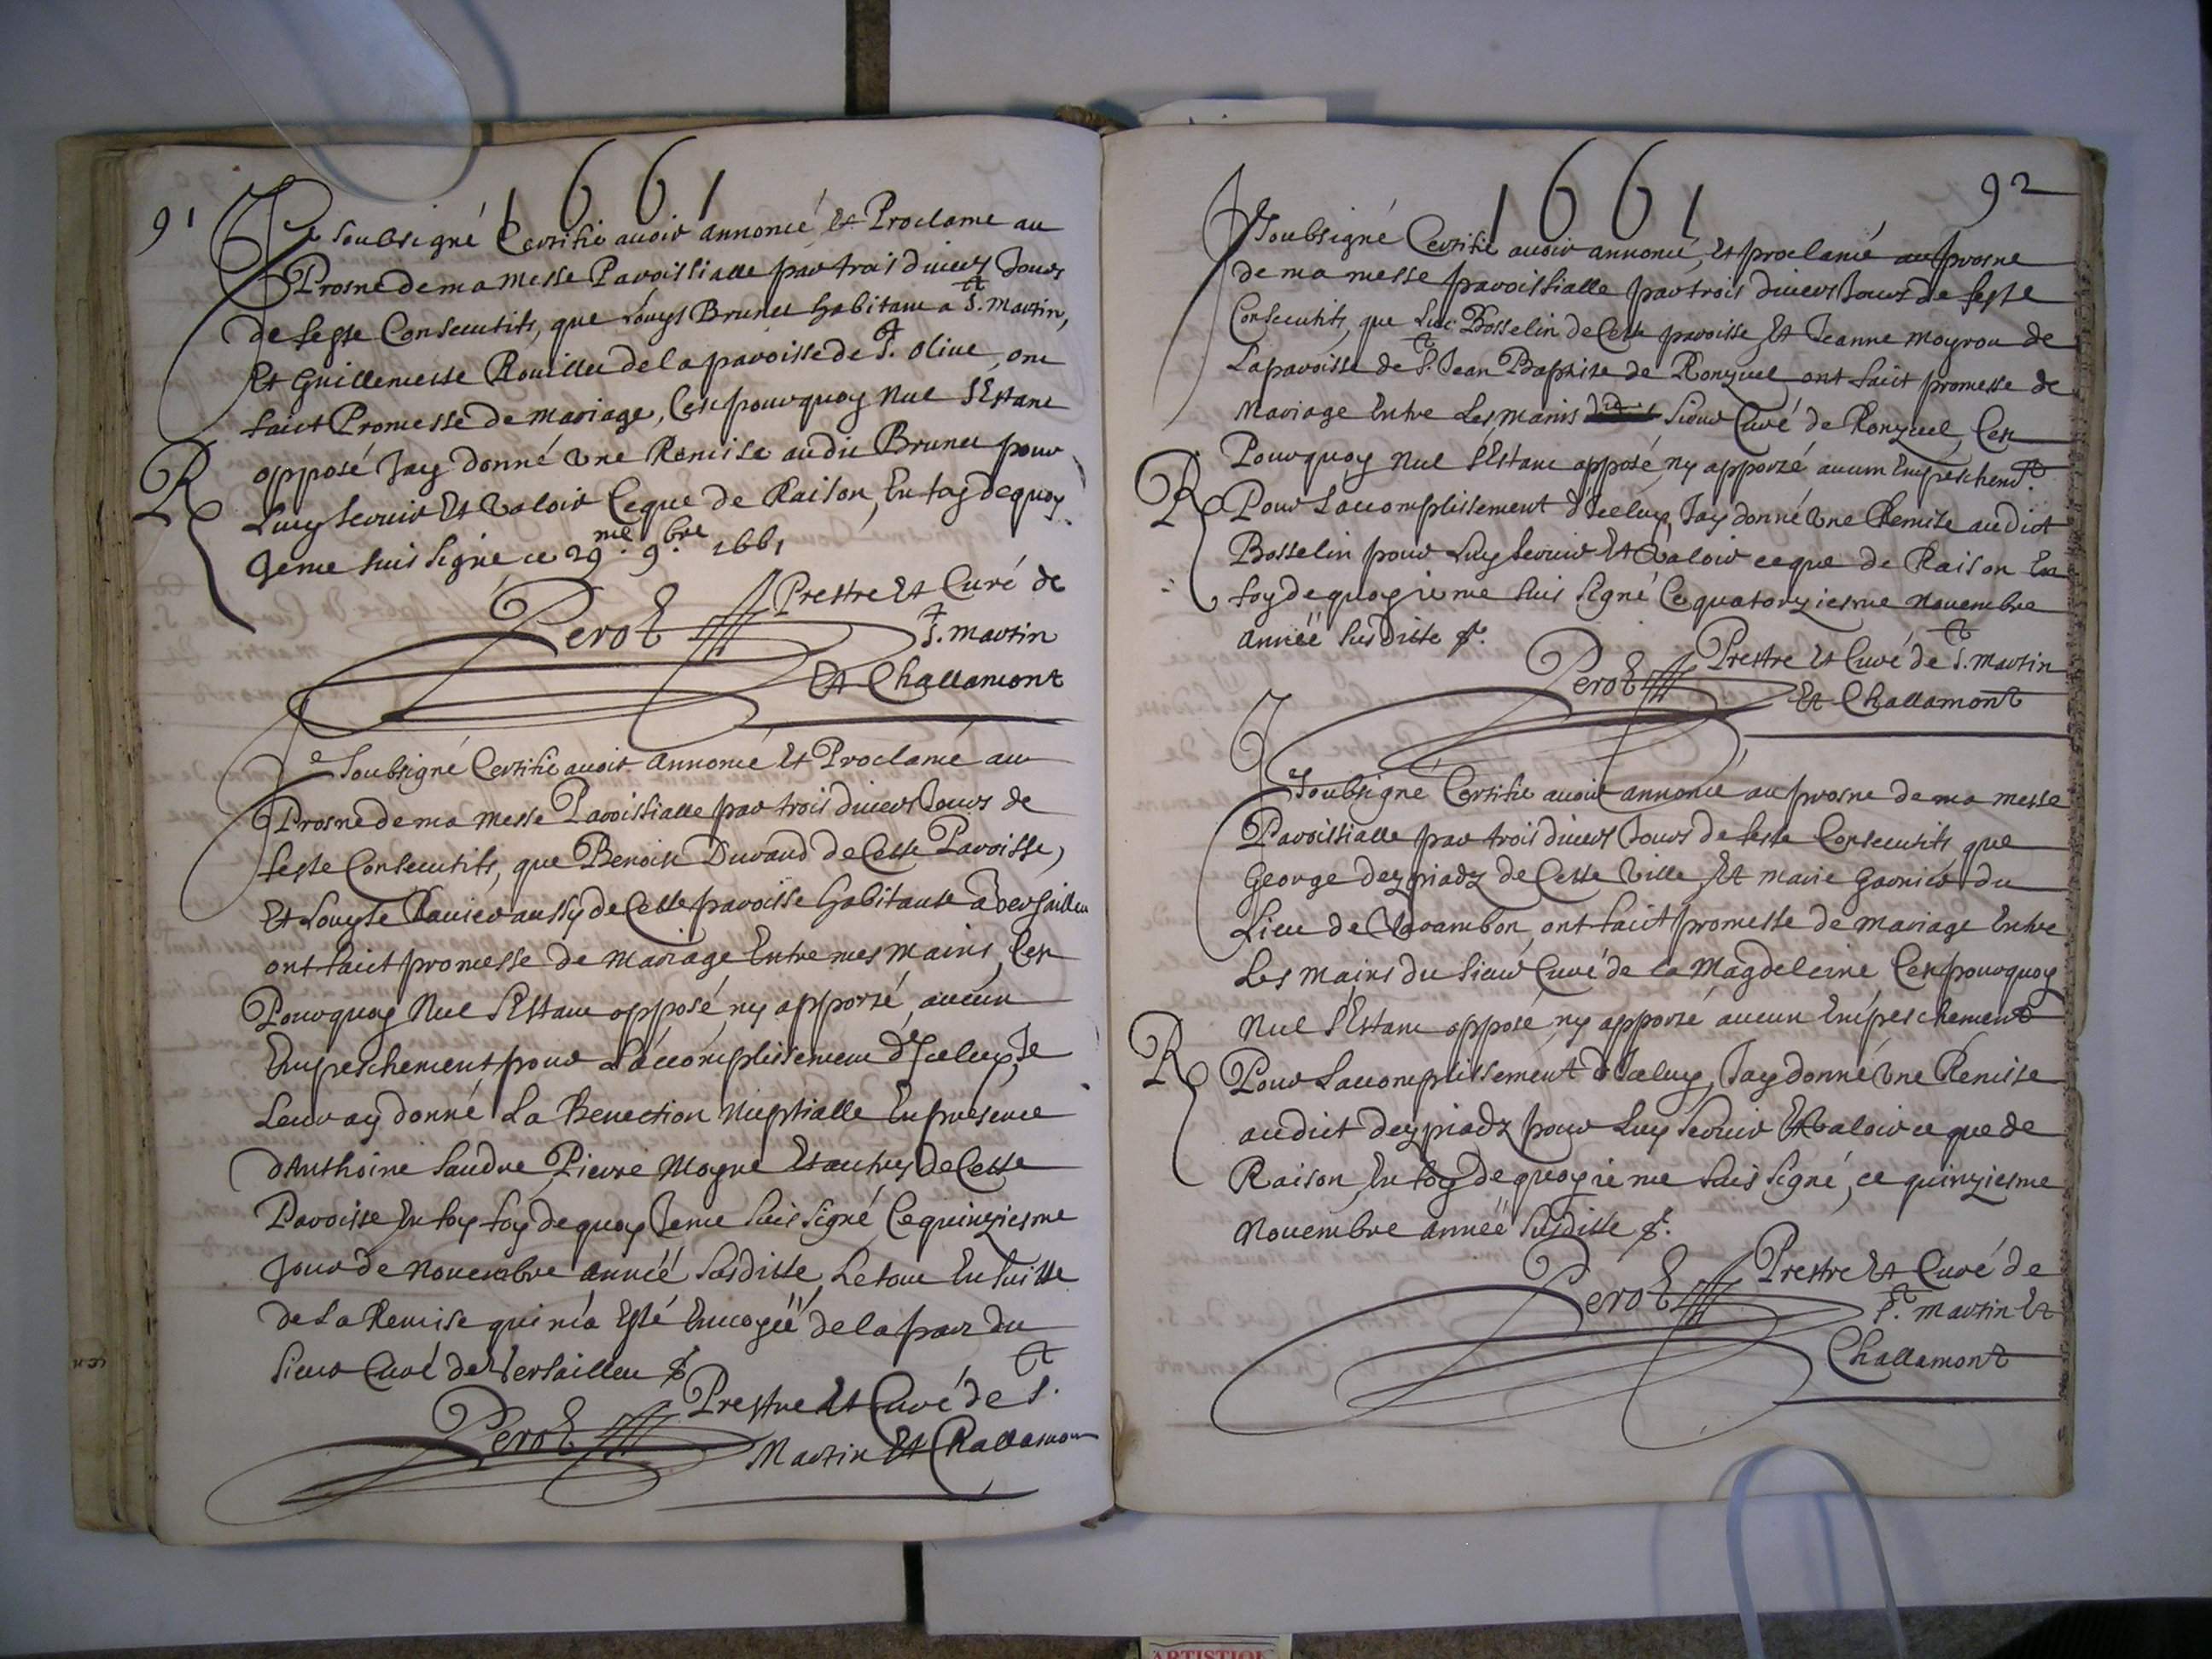 91
1661
Je soubsigné Certifie auoir annoncé, Et Proclame au
Prosne de ma Messe Paroissialle par trois diuers Jours
de feste Consecutifs, que Louys Brunet habitant a St. Martin,
Et Guillemesse Rouillet de la paroisse de St. Oliue, ont
faict Promesse de mariage, Cest pourquoy Nul sEstant
opposé Jay donné Vne Remise audit Brunet pour
R
Luy seruir Et Valoir Ceque de Raison, En foy dequoy
Jeme suis signé ce 29me. 9bre. 1661
Perot Prestre Et Curé de
St. Martin
Et Challamont
Je Soubsigné Certifie auoir Annoncé Et Proclamé au
Prosne de ma Messe Paroissialle par trois diuers Jours de
feste Consecutifs, que Benoist Durand de Cette Paroisse,
Et Louyse Rauier aussy de Cette paroisse habitante a Versaillieu
ont faict promesse de Mariage Entre mes mains, Cest
Pourquoy Nul sEstant opposé, ny apporté, aucun
Empeschement pour Laccomplissement dJceluy, Je
Leur ay donné La Benection Nuptialle En presence
dAnthoine Saudre, Pierre Moyne Et autres de Cette
Paroisse En foy foy dequoy Jeme suis signé, Ce quinziesme
Jour de Nouembre année susditte, Le tout En suitte
de La Remise qui m'a Esté Enuoyéé de la part du
sieur Curé de Versaillieu
Perot Prestre Et Curé de St.
Martin Et Challamont
92
1661
Je Soubsigné Certifie auoir annoncé, Et proclamé au prosne
de ma messe paroissialle par trois diuers Jours de feste
Consecutifs, que Luc Bosselin de Cette paroisse Et Jeanne Moyrou de
La paroisse de St. Jean Baptiste de Ronzuel ont faict promesse de
Mariage Entre Les mains du Sieur Curé de Ronzuel, Cest
Pourquoy Nul sEstant opposé, ny apporté aucun Empeschemt.
R
Pour Laccomplissement dJceluy, Jay donné Vne Remise audict
Bosselin pour Luy seruir Et Valoir ceque de Raison En
foy dequoy ie me suis signé Ce quatorziesme Nouembre
annéé susditte &.
Perot Prestre Et Curé de St. Martin
Et Challamont
Je Soubsigné Certifie auoir annoncé au prosne de ma messe
Paroissialle par trois diuers Jours de feste Consecutifs que
George Dezpiadz de Cette Ville, Et Marie Garnier du
Lieu de Varambon, ont faict promesse de mariage Entre
Les mains du sieur Curé de La Magdeleine, Cest pourquoy
Nul sEstant opposé, ny apporté aucun Empeschement
R
Pour Laccomplissement dJceluy, Jay donné Vne Remise
audict Dezpiadz pour Luy seruir Et Valoir ce que de
Raison, En foy dequoy ie me suis signé, ce quinziesme
Nouembre annéé susditte &.
Perot Prestre Et Curé de
St. Martin Et
Challamont